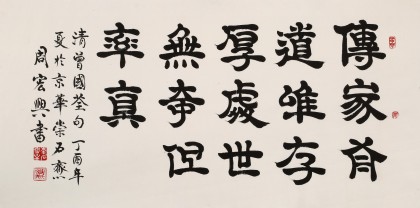 傳家有
道唯存
厚處世
無奇但
率真
清曾國荃句丁酉年
夏於京華崇石齋
周宏興書